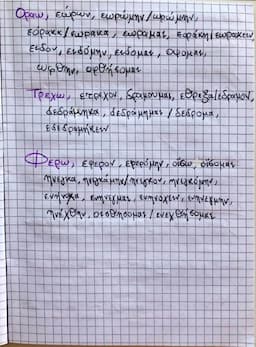 Οραω, εώρων, εωρώμην/ωρώμην,
εόρακα/εωρακα, εωραμαι, εοράκη/εωρακειν,
ειδον, ειδόμην, ειδομαι, οψομαι,
ωφθην, οφθήσομαι
Τρεχω, ετρεχον, δραμουμαι, εθρεξα/εδραμον,
δεδράμηκα, δεδράμημαι/δεδρομα,
εδεδραμήκειν
Φερω, εφερον, εφερόμην, οίσω, οίσομαι
ηνεγκα, ηνεγκάμην/ηνεγκον, ηνεγκόμην,
ενήνοχα, ενηνεγμαι, ενηνοχειν, ενηνεγμην,
ηνέχθην, οισθησομαι/ενεχθήσομαι